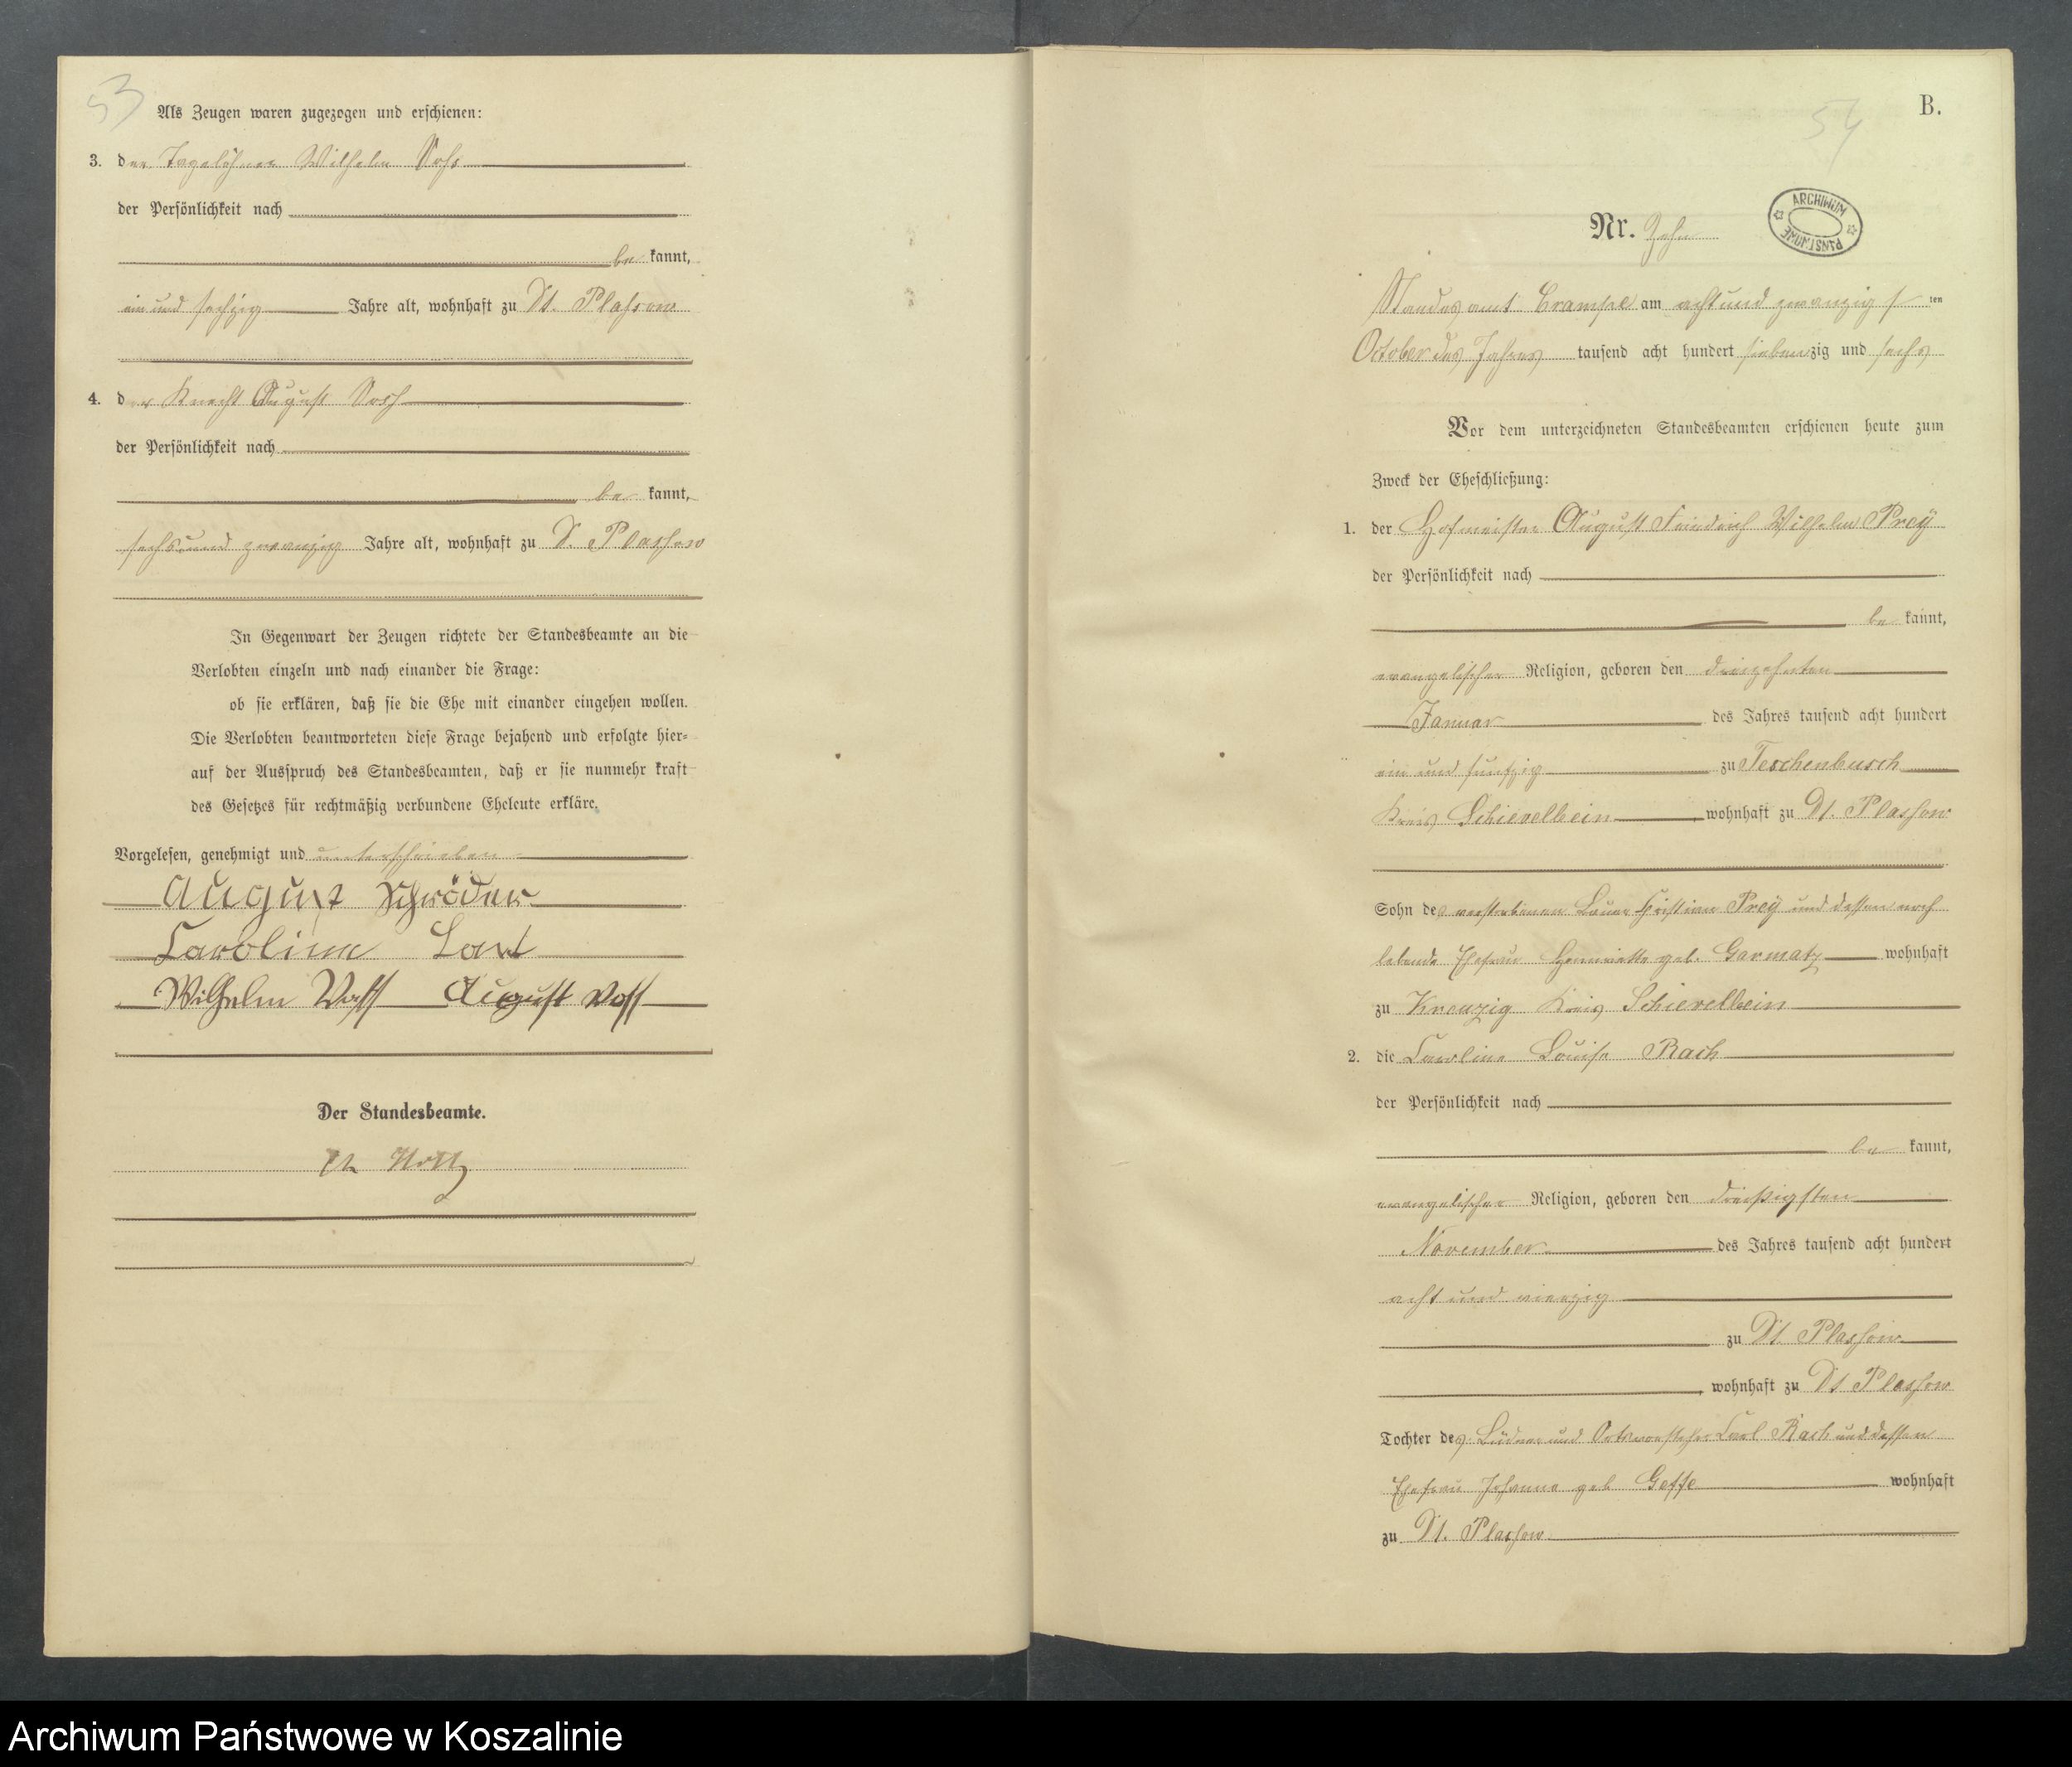 53
Als Zeugen waren zugezogen und erschienen:
3. der Tagelöhner Wilhelm Voß
der Persönlichkeit nach
be kannt,
ein und sechzig Jahre alt, wohnhaft zu Dt. Plassow
4. der Knecht August Voß
der Persönlichkeit nach
be kannt,
sechs und zwanzig Jahre alt, wohnhaft zu D. Plassow
In Gegenwart der Zeugen richtete der Standesbeamte an die
Verlobten einzeln und nach einander die Frage:
ob sie erklären, daß sie die Ehe mit einander eingehen wollen.
Die Verlobten beantworteten diese Frage bejahend und erfolgte hier-
auf der Ausspruch des Standesbeamten, daß er sie nunmehr kraft
des Gesetzes für rechtmäßig verbundene Eheleute erkläre.
Vorgelesen, genehmigt und unterschrieben
August Schröder
Caroline
Wilhelm Voss August Voss
Der Standesbeamte.
B.
54
ARCHIWUM PAŃSTWOWE
Nr. Zehn
Standesamt Crampe am acht und zwanzigsten
October des Jahres tausend acht hundert siebenzig und sechs
Vor dem unterzeichneten Standesbeamten erschienen heute zum
Zweck der Eheschließung:
1. der Hofmeister August Friedrich Wilhelm Prey
der Persönlichkeit nach
be kannt,
evangelischer Religion, geboren den dreizehnten
Januar des Jahres tausend acht hundert
ein und funfzig zu Teschenbusch
Kreis Schievelbein, wohnhaft zu Dt. Plassow
Sohn des verstorbenen Bauer Christian Prey und dessen noch
lebende Ehefrau Henriette geb. Garmatz wohnhaft
zu Kreuzig Kreis Schievelbein
2. die Caroline Louise Rach
der Persönlichkeit nach
be kannt,
evangelischer Religion, geboren den dreißigsten
November des Jahres tausend acht hundert
acht und vierzig
zu Dt. Plassow
, wohnhaft zu Dt Plassow
Tochter des Büdner und Ortsvorsteher Carl Rach und dessen
Ehefrau Johanne geb Geffe wohnhaft
zu Dt. Plassow
Archiwum Państwowe w Koszalinie